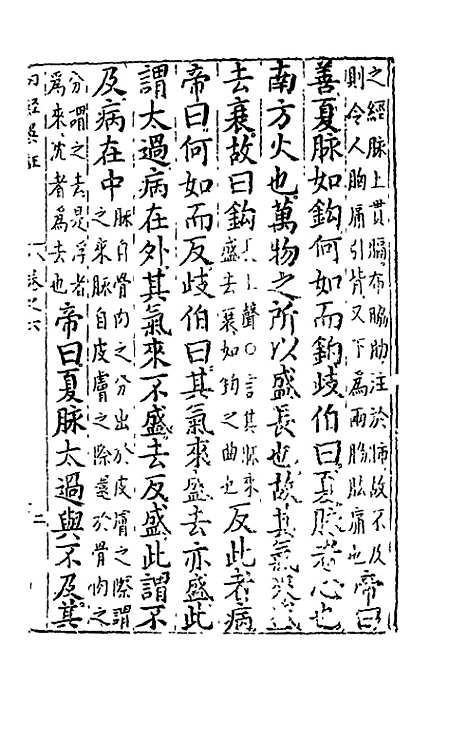 之經脉上貫膈布脇肋注於肺故不及
則令人胸痛引背又下為兩脇胠痛也
帝曰
善夏脉如鈎何如而鈎歧伯曰夏脉者心也
南方火也萬物之所以盛長也故其氣來
去衰故曰鈎
上聲○言其脉來
盛去衰如鈎之曲也
反此者病
帝曰何如而反歧伯曰其氣來盛去亦盛此
謂太過病在外其氣來不盛去反盛此謂不
及病在中
脉自骨肉之分出於皮膚之際謂
之來脉自皮膚之際還於骨肉之
分謂之去是浮者
為來沈者為去也
帝曰夏脉太過與不及其
內經吳註
卷之六
二